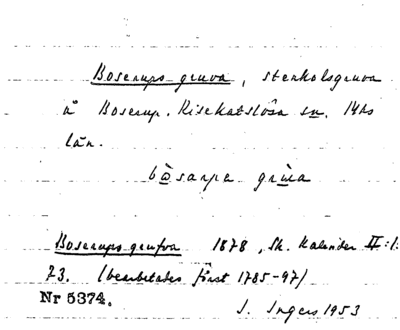 Boserups gruva, stenkolsgruva
å Boserup. Risekatslösa sn. Mhs
län.
bo̱sarpa grṵva
Boserups grufva 1878, Sk. Kalender II:1:
73. (bearbetades först 1785-97)
Nr 5374.
I. Ingers 1953